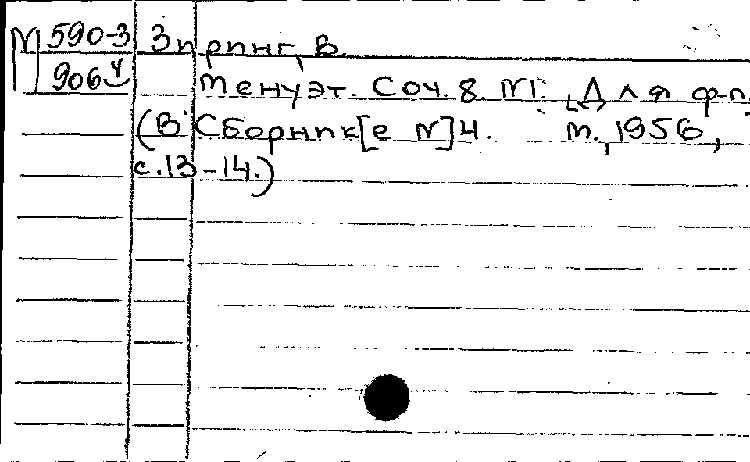 М 590-3 Зиринг, В.
906 ч Менуэт. Соч. 8 №1. [Для ф-п.
(В Сборник[е №]4. М., 1956,
с. 13-14.)